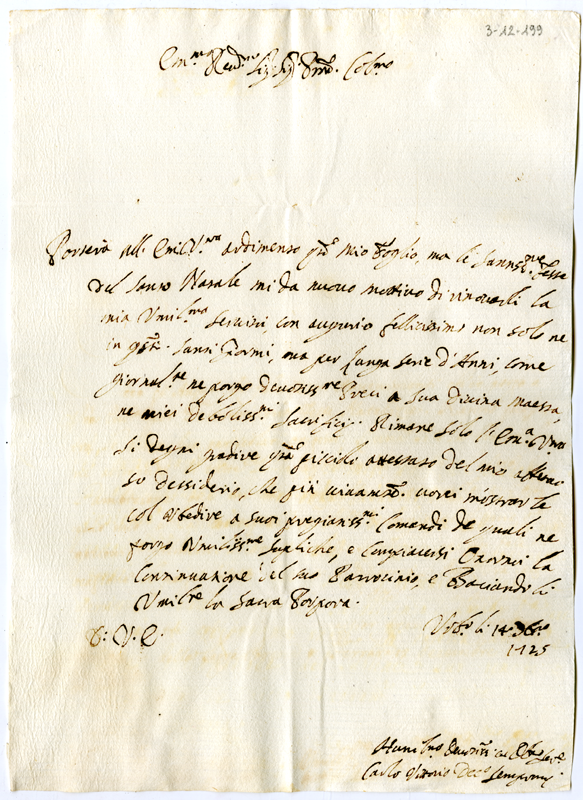 3-12-199
Em.mo Rev.mo Sig. Sig. P.rone Col.mo
Porterà all' Em.V.ra ardimento q.to mio foglio, ma le Santiss.me feste
del Santo Natale mi dà nuovo mottivo di rinovarli la
mia Umil.ma Servitù con augurio fellicissimo non solo ne
in q.ti Santi Giorni, ma per lunga serie d'Anni, come
giornal.te ne porgo devotiss.me Preci a Sua Divina Maestà,
ne miei debolissi.mi Sacrificij. Rimane solo l' Em.a V.ra
si degni gradire q.to piccilo attestato del mio affetuo
so dessiderio, che più vivam.te vorei mostrarle
col obedire a suoi pregiatiss.mi Comandi de quali ne
porgo Umiliss.me Supliche, e Compiacersi Onorarmi la
Continuatione del suo Patrocinio, e Baciandoli
Umil.te la Sacra Porpora.
D: V. E.
Urb.o li 14 Xbre
1725
Humil.mo Devotiss.mo et Obl.mo Ser.re
Carlo Vittorio Dec.o Sempronij